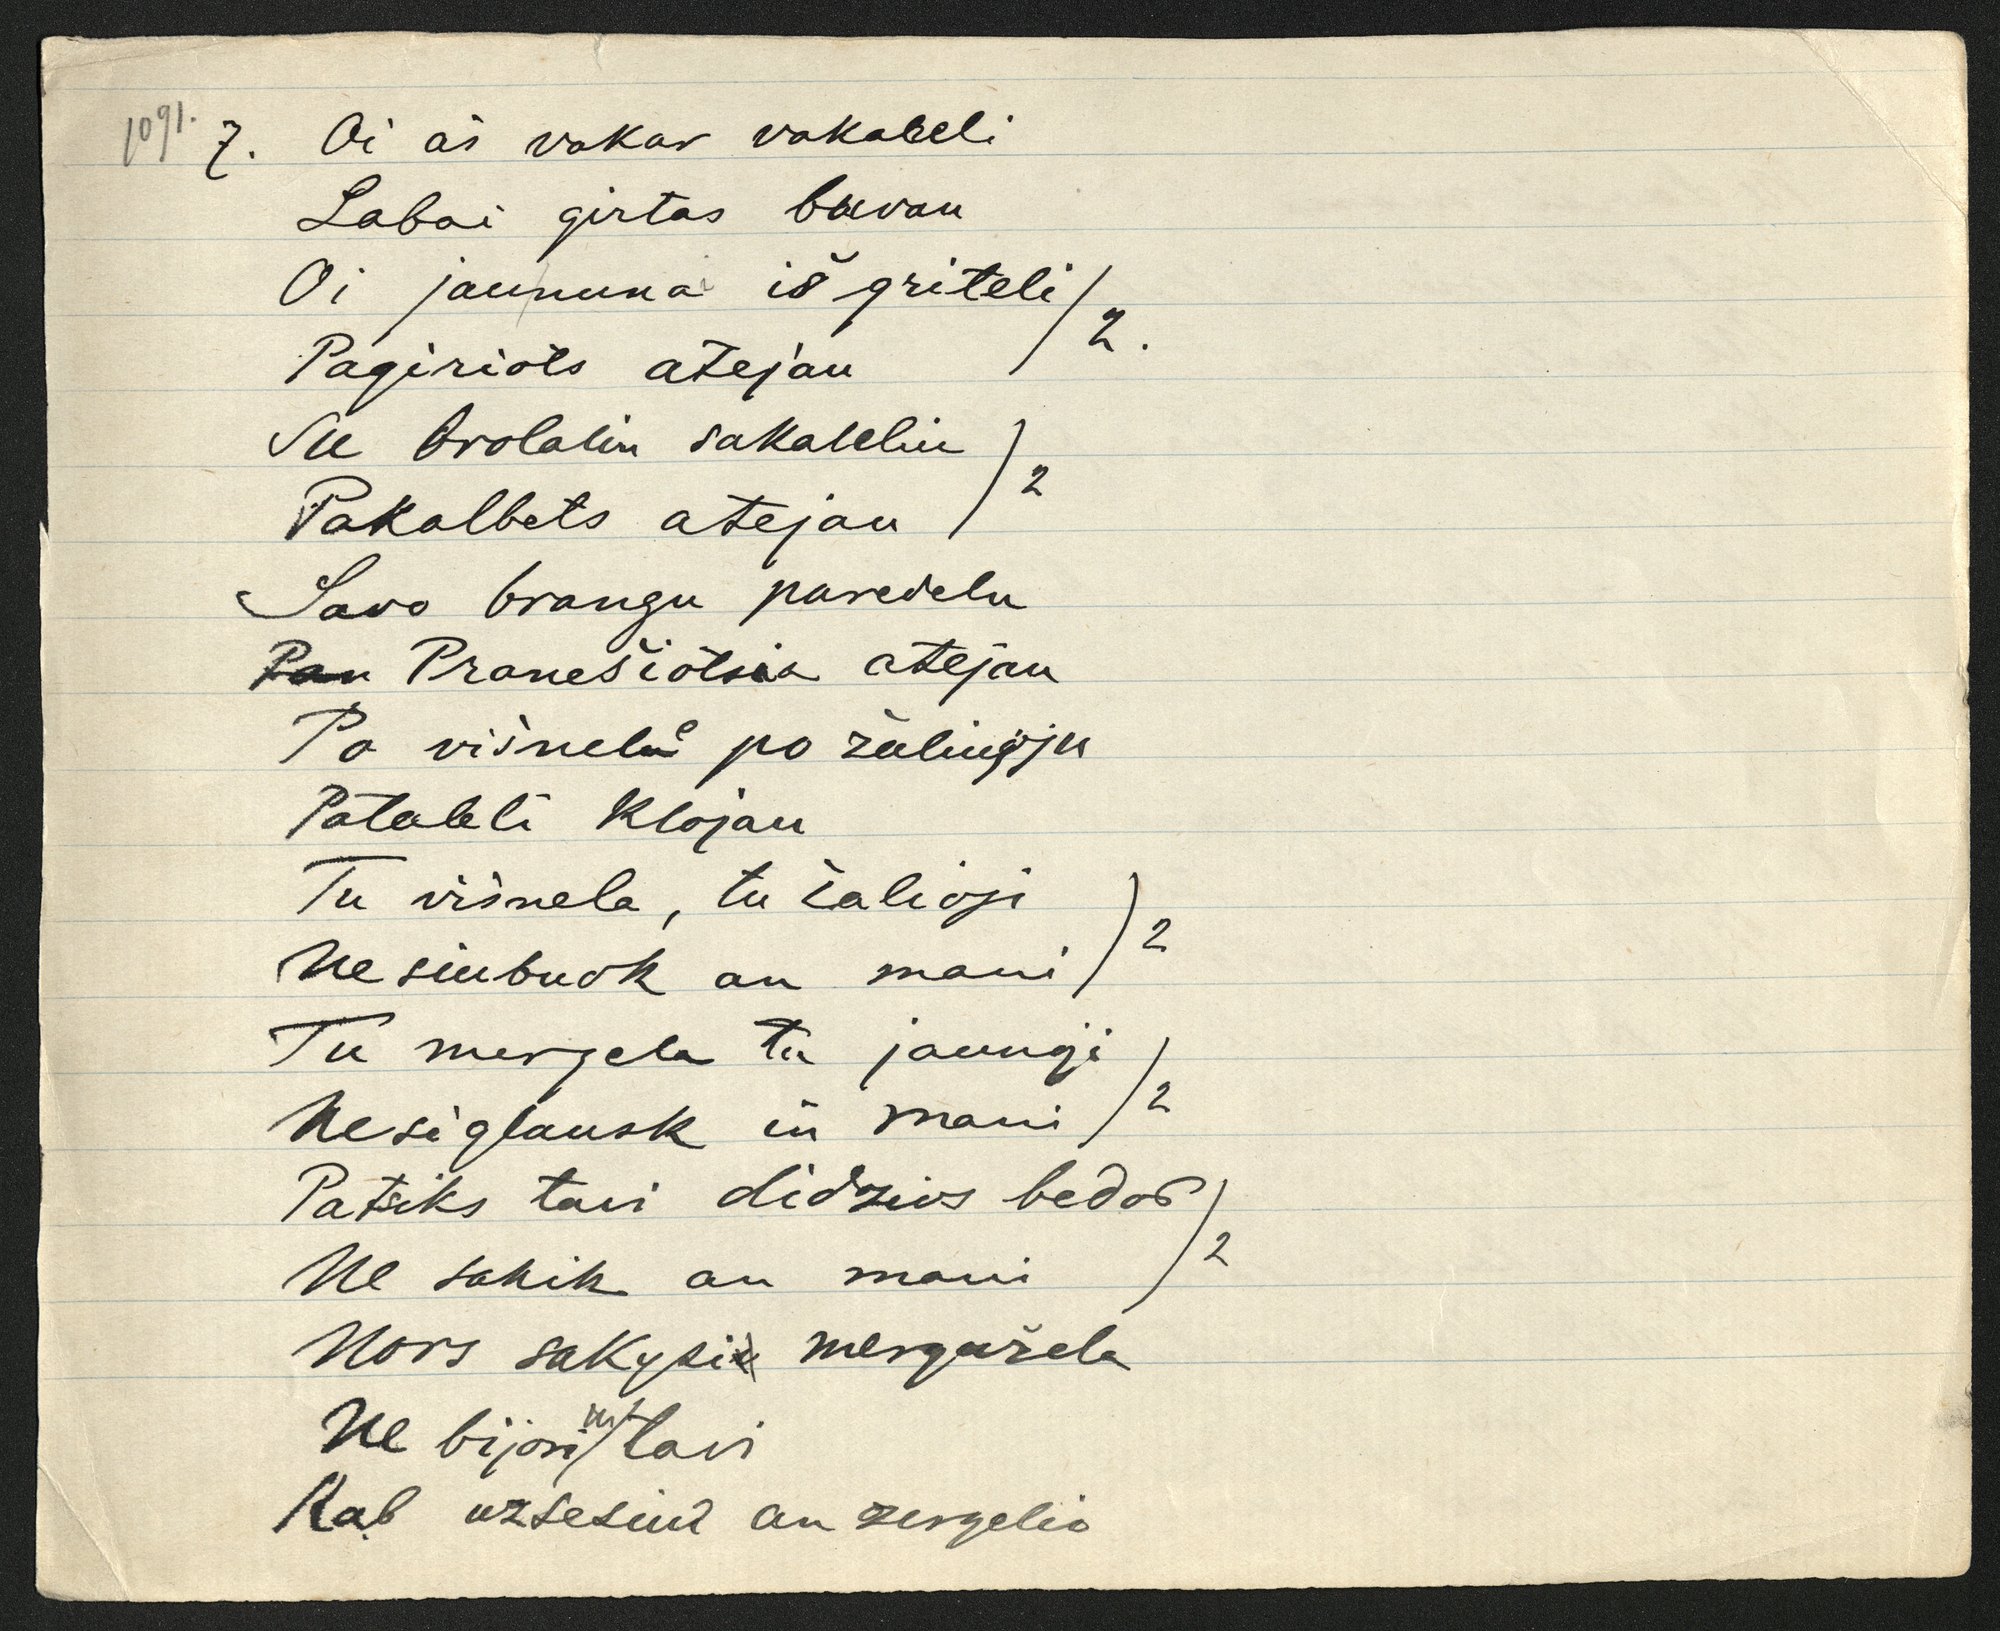 1091. 7. Oi aš vakar vakaleli
Labai girtas buvau
Oi jaununai iš griteli
Pagiriots atejau /2.
Su brolaliu sakaleliu
Pakalbets atejau /2
Savo brangu paredelu
Pranešiotsia atejau
Po višnelu po žalinoju
Pataleli klojau
Tu višnela, tu žalioji
Ne siubuok an mani /2
Tu mergela tu jaunoji
Nesiglausk in mani /2
Patsiks tavi didzios bedos
Ne sakik an mani /2
Nors sakysi mergužela
Ne bijosiu tavi
Kab uzsesiu an zergelio